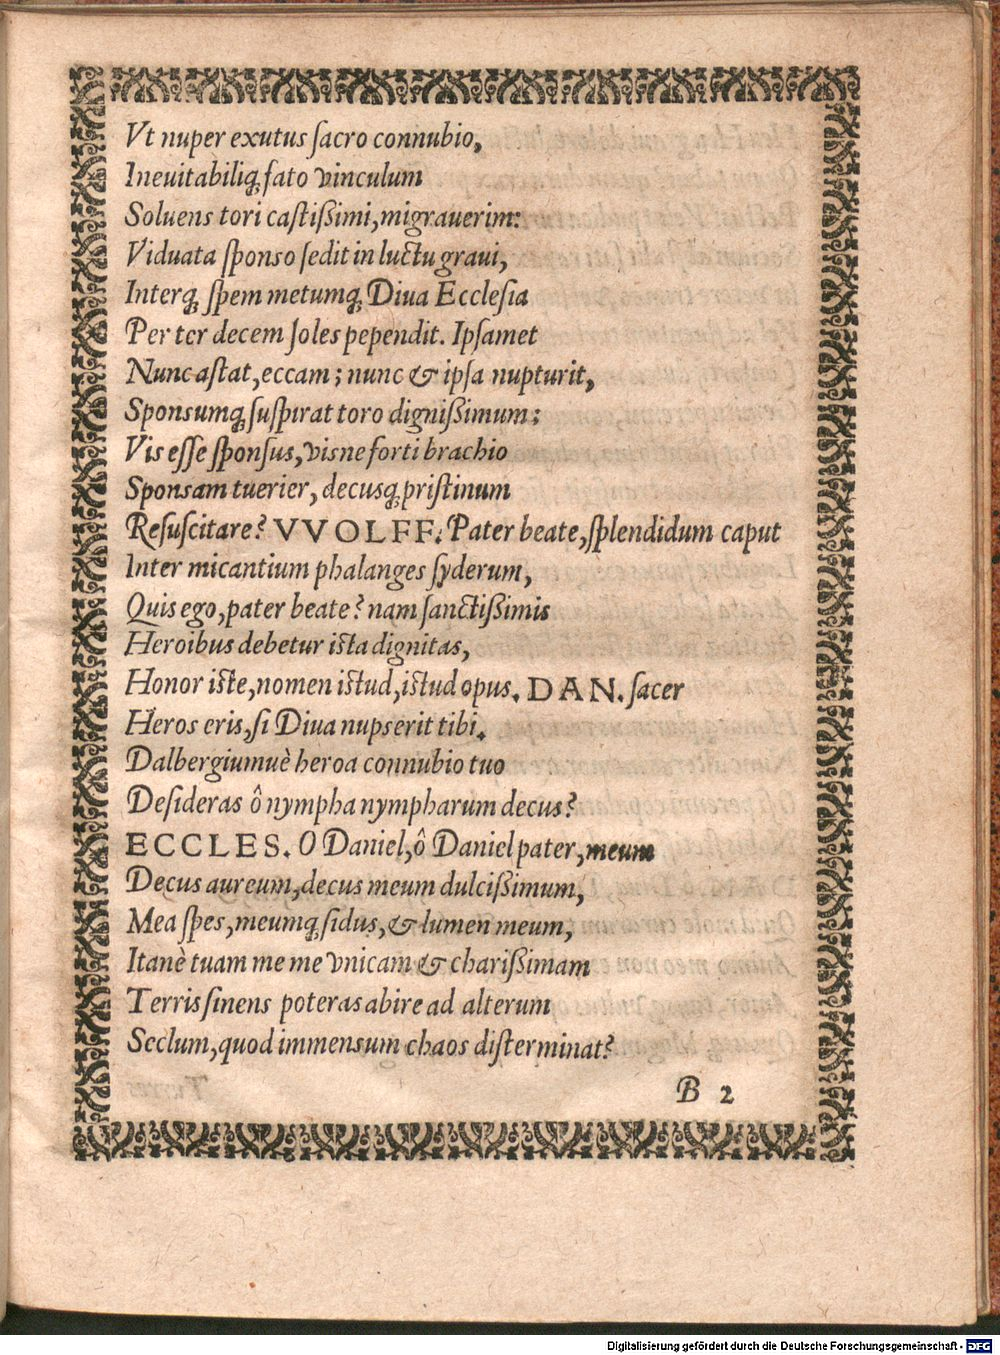 Vt nuper exutus ſacro connubio,
Ineuitabiliq́; fato vinculum
Soluens tori caſtiſſimi, migrauerim:
Viduata ſponso ſedit in luctu graui,
Interq́; ſpem metumq́; Diua Eccleſia
Per ter decem ſoles pependit. Ipſamet
Nunc aſtat, eccam; nunc & ipſa nupturit,
Sponsumq́; ſuſpirat toro digniſſimum:
Vis eſſe ſponſus, visne forti brachio
Sponsam tuerier, decusq́; priſtinum
Reſuſcitare? VVOLFF. Pater beate, ſplendidum caput
Inter micantium phalanges ſyderum,
Quis ego, pater beate? nam ſanctiſſimis
Heroibus debetur iſta dignitas,
Honor iſte, nomen iſtud, iſtud opus. DAN. ſacer
Heros eris, ſi Diua nupserit tibi.
Dalbergiumuè heroa connubio tuo
Deſideras ô nympha nympharum decus?
ECCLES. O Daniel, ô Daniel pater, meum
Decus aureum, decus meum dulciſſimum,
Mea ſpes, meumq́; ſidus, & lumen meum,
Itanè tuam me me vnicam & chariſſimam
Terris ſinens poteras abire ad alterum
Seclum, quod immensum chaos diſterminat?
B 2
Digitalisierung gefördert durch die Deutsche Forschungsgemeinschaft - DFG